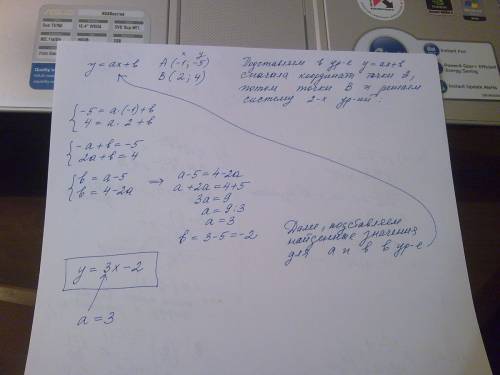 y = ax + b
x y
A (-1; -5)
B (2; 4)
Подставляем в ур-е y = ax + b
сначала координаты точки A,
потом точки B и решаем
систему 2-х ур-ий.
{ -5 = a·(-1) + b
4 = a·2 + b
{ -a + b = -5
2a + b = 4
{ b = a - 5
b = 4 - 2a
⇒ a - 5 = 4 - 2a
a + 2a = 4 + 5
3a = 9
a = 9:3
a = 3
b = 3 - 5 = -2
Далее, подставляем
найденные значения
для a и b в ур-е
y = 3x - 2
a = 3